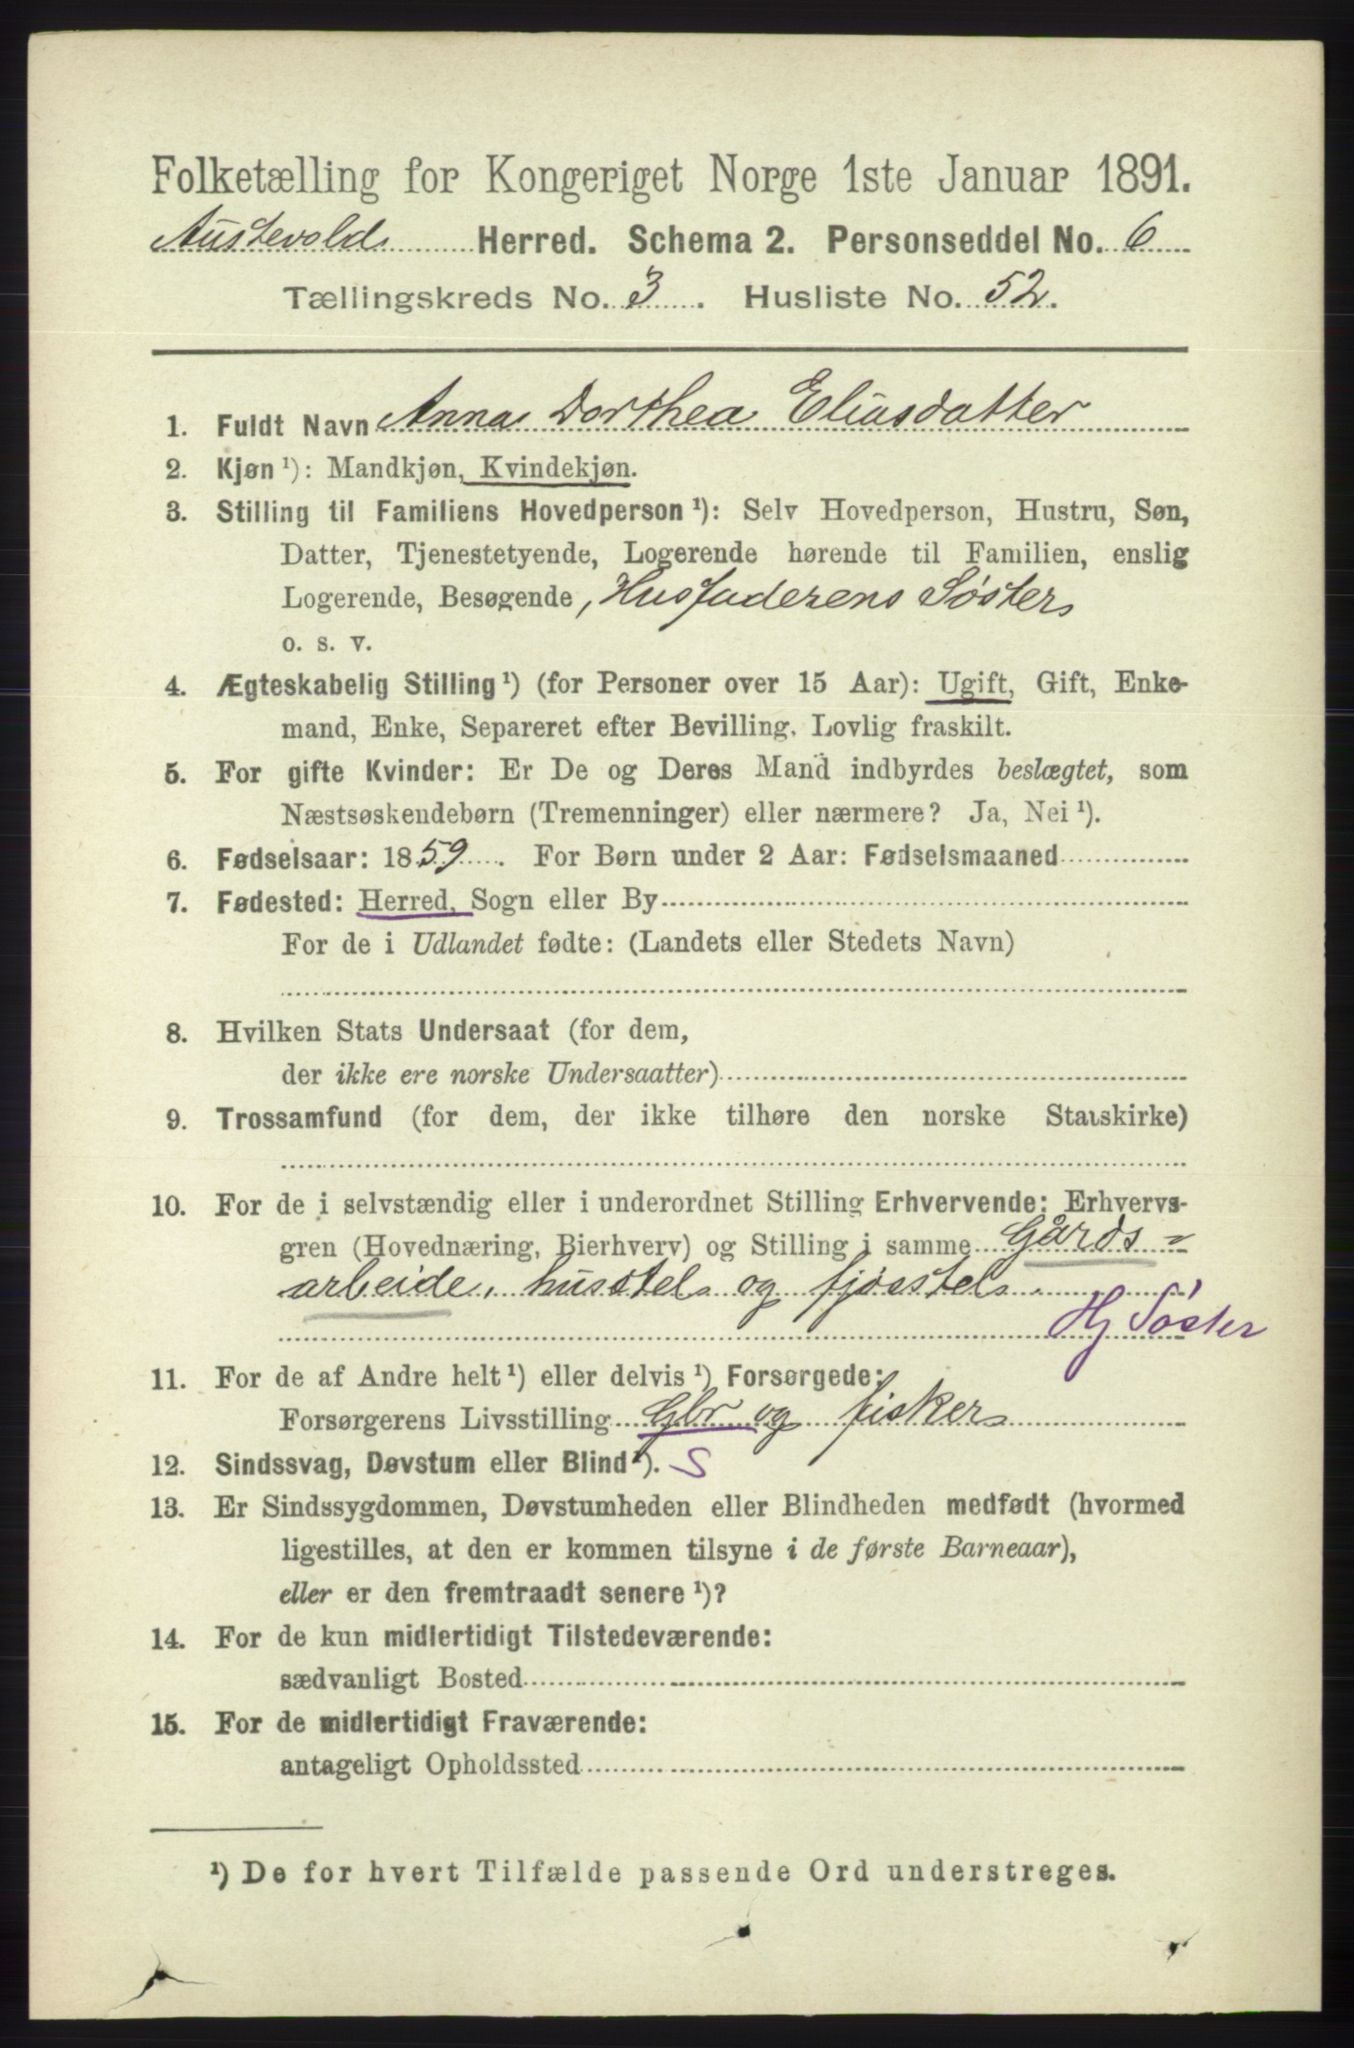 Folketælling for Kongeriget Norge 1ste Januar 1891.
Austevold Herred. Schema 2. Personseddel No. 6
Tællingskreds No. 3. Husliste No. 52.
1. Fuldt Navn Anna Dorthea Eliasdatter
2. Kjøn ¹): Mandkjøn, Kvindekjøn.
3. Stilling til Familiens Hovedperson ¹): Selv Hovedperson, Hustru, Søn,
Datter, Tjenestetyende, Logerende hørende til Familien, enslig
Logerende, Besøgende, Husfaderens Søster
o. s. v.
4. Ægteskabelig Stilling ¹) (for Personer over 15 Aar): Ugift, Gift, Enke-
mand, Enke, Separeret efter Bevilling. Lovlig fraskilt.
5. For gifte Kvinder: Er De og Deres Mand indbyrdes beslægtet, som
Næstsøskendebørn (Tremenninger) eller nærmere? Ja, Nei ¹).
6. Fødselsaar: 1859. For Børn under 2 Aar: Fødselsmaaned
7. Fødested: Herred, Sogn eller By
For de i Udlandet fødte: (Landets eller Stedets Navn)
8. Hvilken Stats Undersaat (for dem,
der ikke ere norske Undersaatter)
9. Trossamfund (for dem, der ikke tilhøre den norske Statskirke)
10. For de i selvstændig eller i underordnet Stilling Erhvervende: Erhvervs-
gren (Hovednæring, Bierhverv) og Stilling i samme Gårds-
arbeide, husstel og fjøsstel.
Hj Søster
11. For de af Andre helt ¹) eller delvis ¹) Forsørgede:
Forsørgerens Livsstilling Gbr og fisker
12. Sindssvag, Døvstum eller Blind ¹). S
13. Er Sindssygdommen, Døvstumheden eller Blindheden medfødt (hvormed
ligestilles, at den er kommen tilsyne i de første Barneaar),
eller er den fremtraadt senere ¹)?
14. For de kun midlertidigt Tilstedeværende:
sædvanligt Bosted
15. For de midlertidigt Fraværende:
antageligt Opholdssted
¹) De for hvert Tilfælde passende Ord understreges.